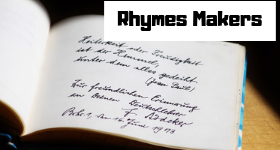 Rhymes Makers
Heiterkeit oder Freudigkeit
ist der Himmel,
unter dem alles gedeiht.
(Jean Paul)
Zur freundlichen Erinnerung
an Deinen Deutschlehrer
F.
1973